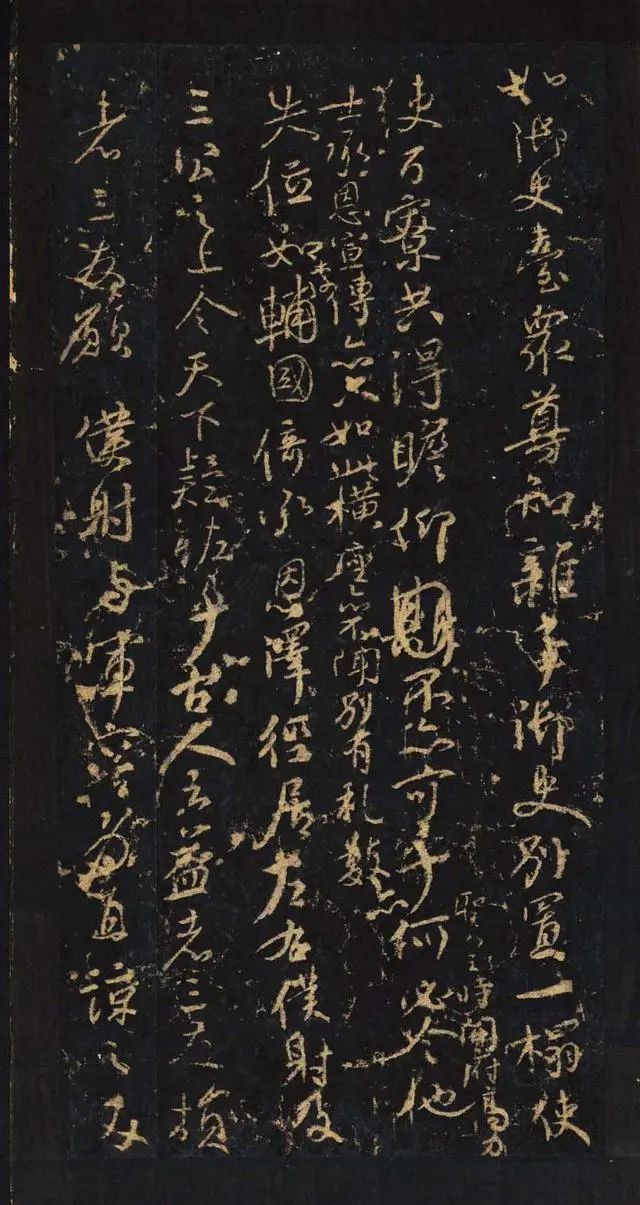 如御史臺眾尊知雜事御史別置一榻使
百寮共得瞻仰不亦可乎何必令他
聖皇時開府高力
士承恩宣傳亦只如此橫座亦不聞別有礼數亦
失位如李輔國倚承恩澤徑居左右僕射及
三公之上令天下疑恠乎古人云益者三友損
者三友願僕射與軍容為直諒之友